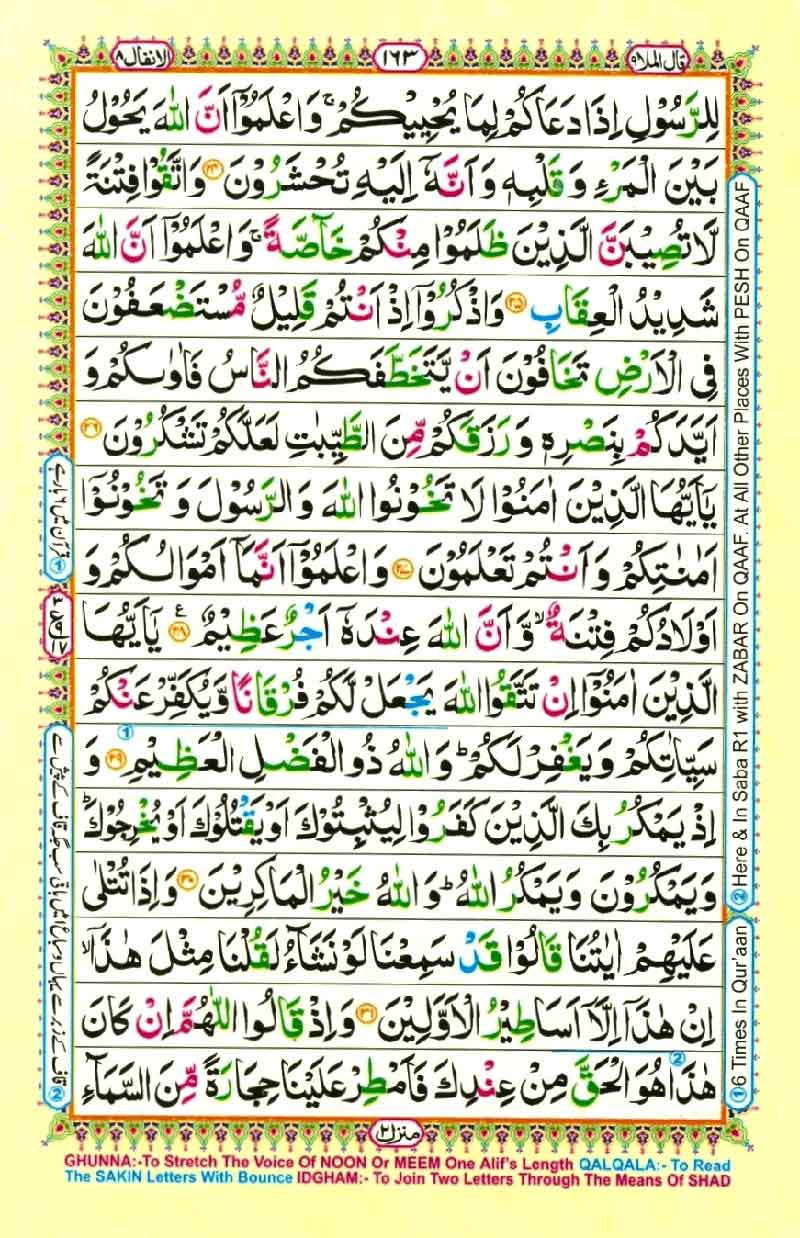 قال الملا ٩
١٦٣
الانفال ٨
لِلرَّسُوْلِ اِذَا دَعَاكُمْ لِمَا يُحْيِيْكُمْ ۚ وَ اعْلَمُوْۤا اَنَّ اللّٰهَ يَحُوْلُ
بَيْنَ الْمَرْءِ وَ قَلْبِهٖ وَ اَنَّهٗۤ اِلَيْهِ تُحْشَرُوْنَ ﴿۲۴﴾ وَ اتَّقُوْا فِتْنَةً
لَّا تُصِيْبَنَّ الَّذِيْنَ ظَلَمُوْا مِنْكُمْ خَآصَّةً ۚ وَ اعْلَمُوْۤا اَنَّ اللّٰهَ
شَدِيْدُ الْعِقَابِ ﴿۲۵﴾ وَ اذْكُرُوْۤا اِذْ اَنْتُمْ قَلِيْلٌ مُّسْتَضْعَفُوْنَ
فِي الْاَرْضِ تَخَافُوْنَ اَنْ يَّتَخَطَّفَكُمُ النَّاسُ فَاٰوٰىكُمْ وَ
اَيَّدَكُمْ بِنَصْرِهٖ وَ رَزَقَكُمْ مِّنَ الطَّيِّبٰتِ لَعَلَّكُمْ تَشْكُرُوْنَ ﴿۲۶﴾
يٰۤاَيُّهَا الَّذِيْنَ اٰمَنُوْا لَا تَخُوْنُوا اللّٰهَ وَ الرَّسُوْلَ وَ تَخُوْنُوْۤا
اَمٰنٰتِكُمْ وَ اَنْتُمْ تَعْلَمُوْنَ ﴿۲۷﴾ وَ اعْلَمُوْۤا اَنَّمَاۤ اَمْوَالُكُمْ وَ
اَوْلَادُكُمْ فِتْنَةٌ ۙ وَّ اَنَّ اللّٰهَ عِنْدَهٗۤ اَجْرٌ عَظِيْمٌ ﴿۲۸﴾ ع يٰۤاَيُّهَا
الَّذِيْنَ اٰمَنُوْۤا اِنْ تَتَّقُوا اللّٰهَ يَجْعَلْ لَّكُمْ فُرْقَانًا وَّ يُكَفِّرْ عَنْكُمْ
سَيِّاٰتِكُمْ وَ يَغْفِرْ لَكُمْ ؕ وَ اللّٰهُ ذُو الْفَضْلِ الْعَظِيْمِ ﴿۲۹﴾ وَ
اِذْ يَمْكُرُ بِكَ الَّذِيْنَ كَفَرُوْا لِيُثْبِتُوْكَ اَوْ يَقْتُلُوْكَ اَوْ يُخْرِجُوْكَ ؕ
وَ يَمْكُرُوْنَ وَ يَمْكُرُ اللّٰهُ ؕ وَ اللّٰهُ خَيْرُ الْمَاكِرِيْنَ ﴿۳۰﴾ وَ اِذَا تُتْلٰى
عَلَيْهِمْ اٰيٰتُنَا قَالُوْا قَدْ سَمِعْنَا لَوْ نَشَآءُ لَقُلْنَا مِثْلَ هٰذَاۤ ۙ
اِنْ هٰذَاۤ اِلَّاۤ اَسَاطِيْرُ الْاَوَّلِيْنَ ﴿۳۱﴾ وَ اِذْ قَالُوا اللّٰهُمَّ اِنْ كَانَ
هٰذَا هُوَ الْحَقَّ مِنْ عِنْدِكَ فَاَمْطِرْ عَلَيْنَا حِجَارَةً مِّنَ السَّمَآءِ
منزل ٢
① 6 Times In Qur'aan
② Here & In Saba R1 with ZABAR On QAAF. At All Other Places With PESH On QAAF
GHUNNA:-To Stretch The Voice Of NOON Or MEEM One Alif's Length QALQALA:- To Read
The SAKIN Letters With Bounce IDGHAM:- To Join Two Letters Through The Means Of SHAD